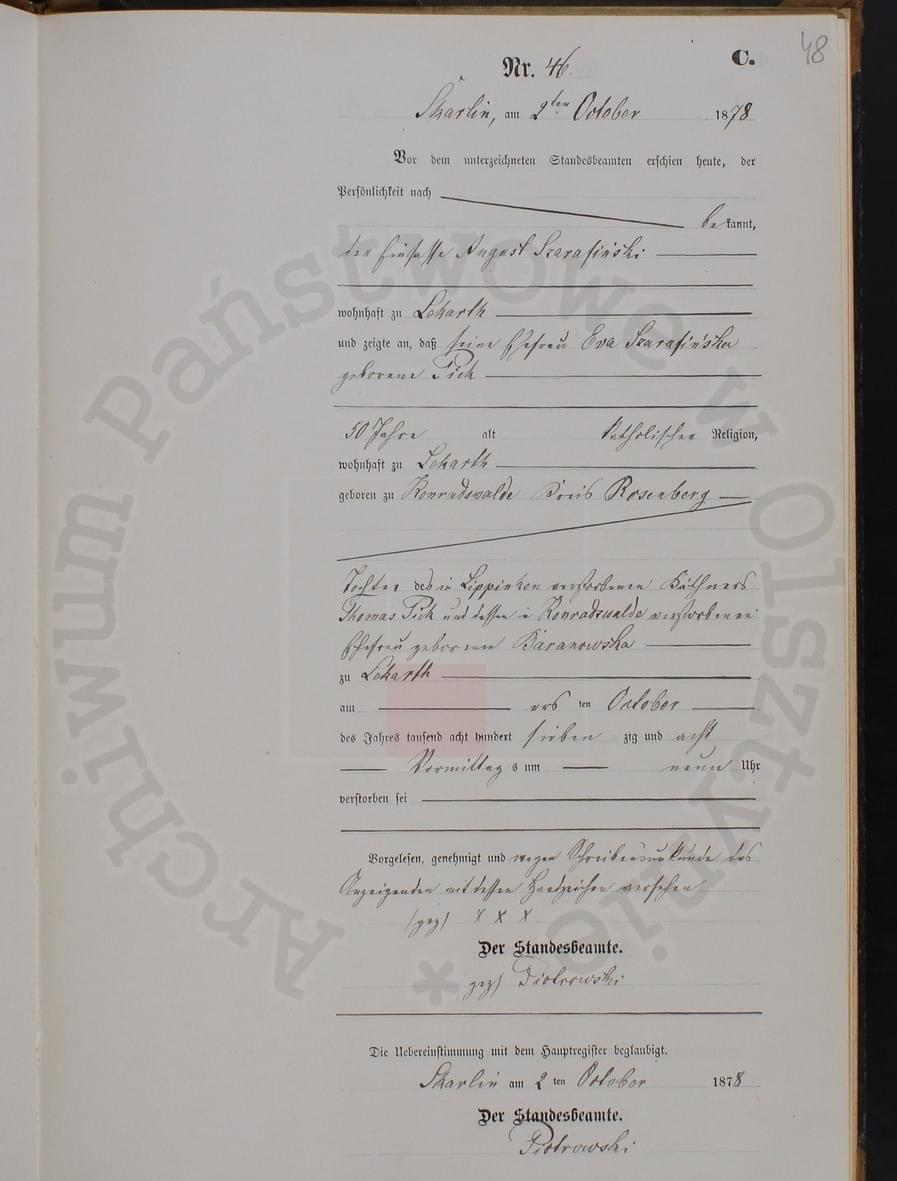 48
C.
Nr. 46.
Skarlin, am 2ten October 1878
Vor dem unterzeichneten Standesbeamten erschien heute, der
Persönlichkeit nach
bekannt,
der Einsasse August Szarafiński
wohnhaft zu Lekarth
und zeigte an, daß seine Ehefrau Eva Szarafińska
geborene Pick
50 Jahre alt katholischer Religion,
wohnhaft zu Lekarth
geboren zu Konradswalde Kreis Rosenberg
Tochter des in Lippinken verstorbenen Käthners
Thomas Pick und dessen in Konradswalde verstorbenen
Ehefrau geborenen Baranowska
zu Lekarth
am ersten October
des Jahres tausend acht hundert siebenzig und acht
Vormittags um neun Uhr
verstorben sei
Vorgelesen, genehmigt und wegen Schreibensunkunde des
Anzeigenden mit dessen Handzeichen versehen
(gez) X X X
Der Standesbeamte.
gez) Piotrowski
Die Uebereinstimmung mit dem Hauptregister beglaubigt.
Skarlin am 2 ten October 1878
Der Standesbeamte.
Piotrowski
Archiwum Państwowe w Olsztynie *